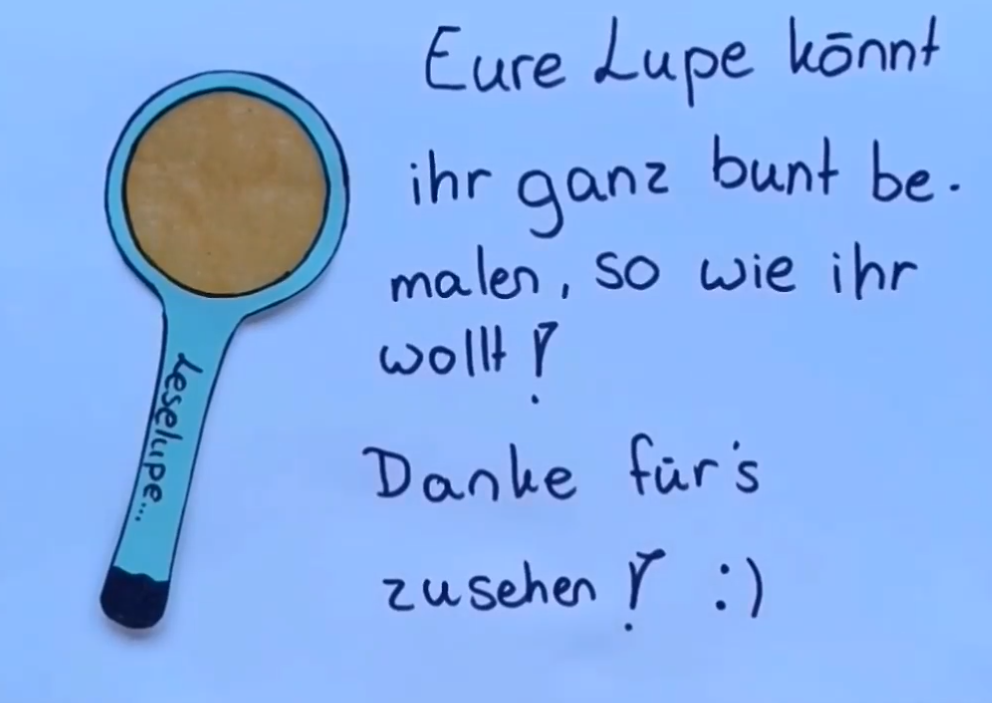 Eure Lupe könnt
ihr ganz bunt be-
malen, so wie ihr
wollt!
Danke für's
zusehen! :)
Leselupe...